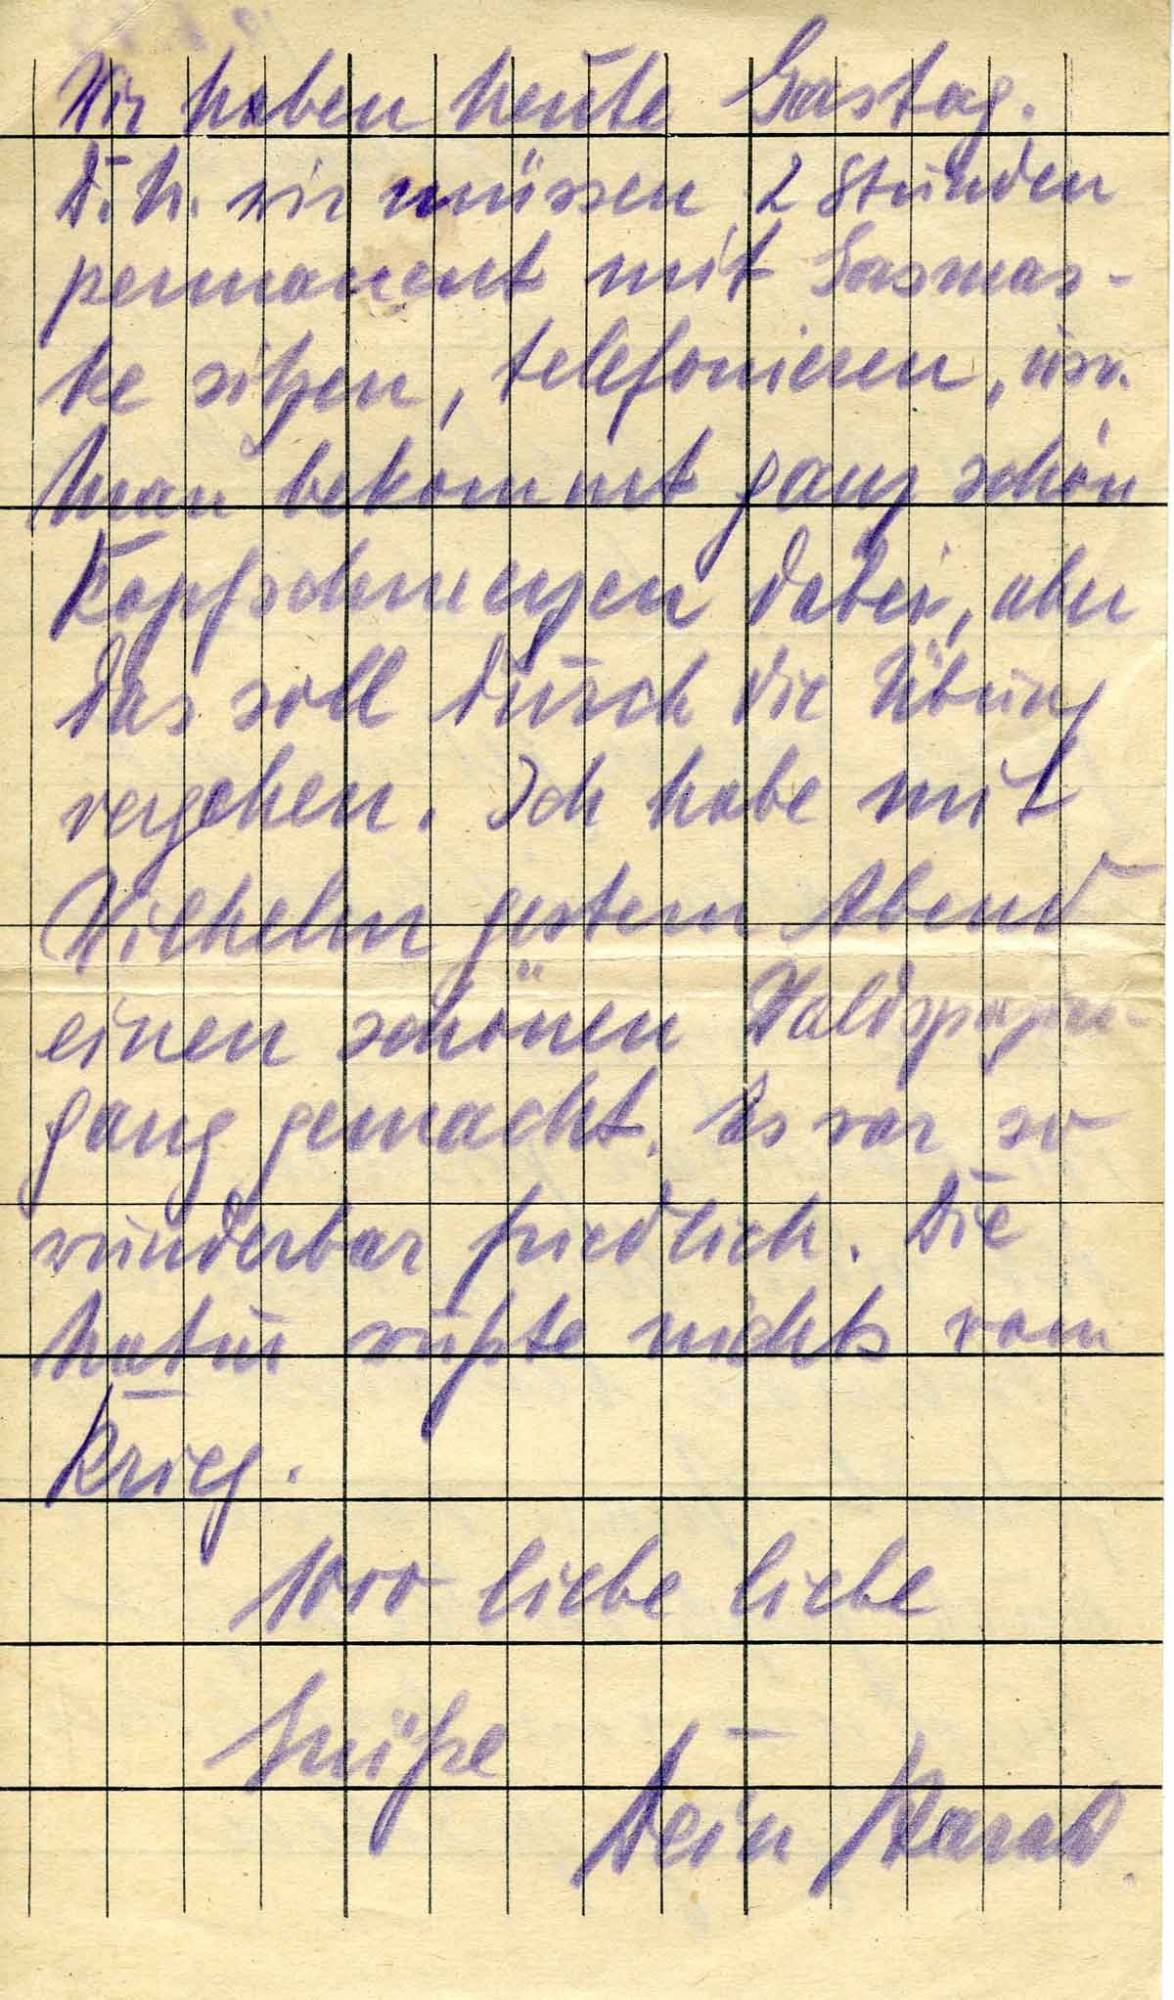 Wir haben heute Gastag.
D.h. wir müssen 2 Stunden
permanent mit Gasmas-
ke sitzen, telefonieren, usw.
Man bekommt ganz schön
Kopfschmerzen dabei, aber
das soll durch die Übung
vergehen. Ich habe mit
Wilhelm gestern Abend
einen schönen Waldspazier-
gang gemacht. Es war so
wunderbar friedlich. Die
Natur wußte nichts vom
Krieg.
1000 liebe liebe
Grüße
Dein